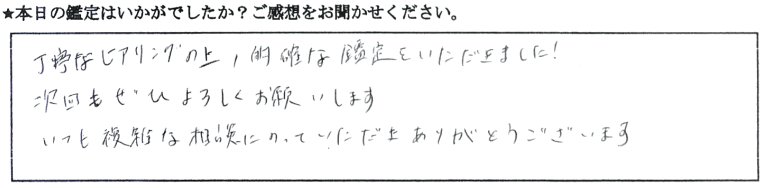 ★本日の鑑定はいかがでしたか？ご感想をお聞かせください。
丁寧なヒアリングの上，的確な鑑定をいただきました！
次回もぜひよろしくお願いします
いつも複雑な相談にのっていただきありがとうございます